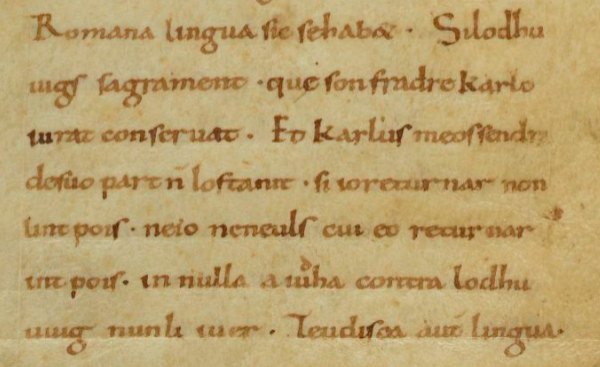 Romana lingua sic se habet. Si lodhu
uigs sagrament. que son fradre karlo
iurat conseruat. Et karlus meos sendra
de suo part n̄ lostanit. si io returnar non
lint pois. ne io ne neuls cui eo returnar
int pois. in nulla aiudha contra lodhu
uuig nun li iuer. Teudisca aut̄ lingua.